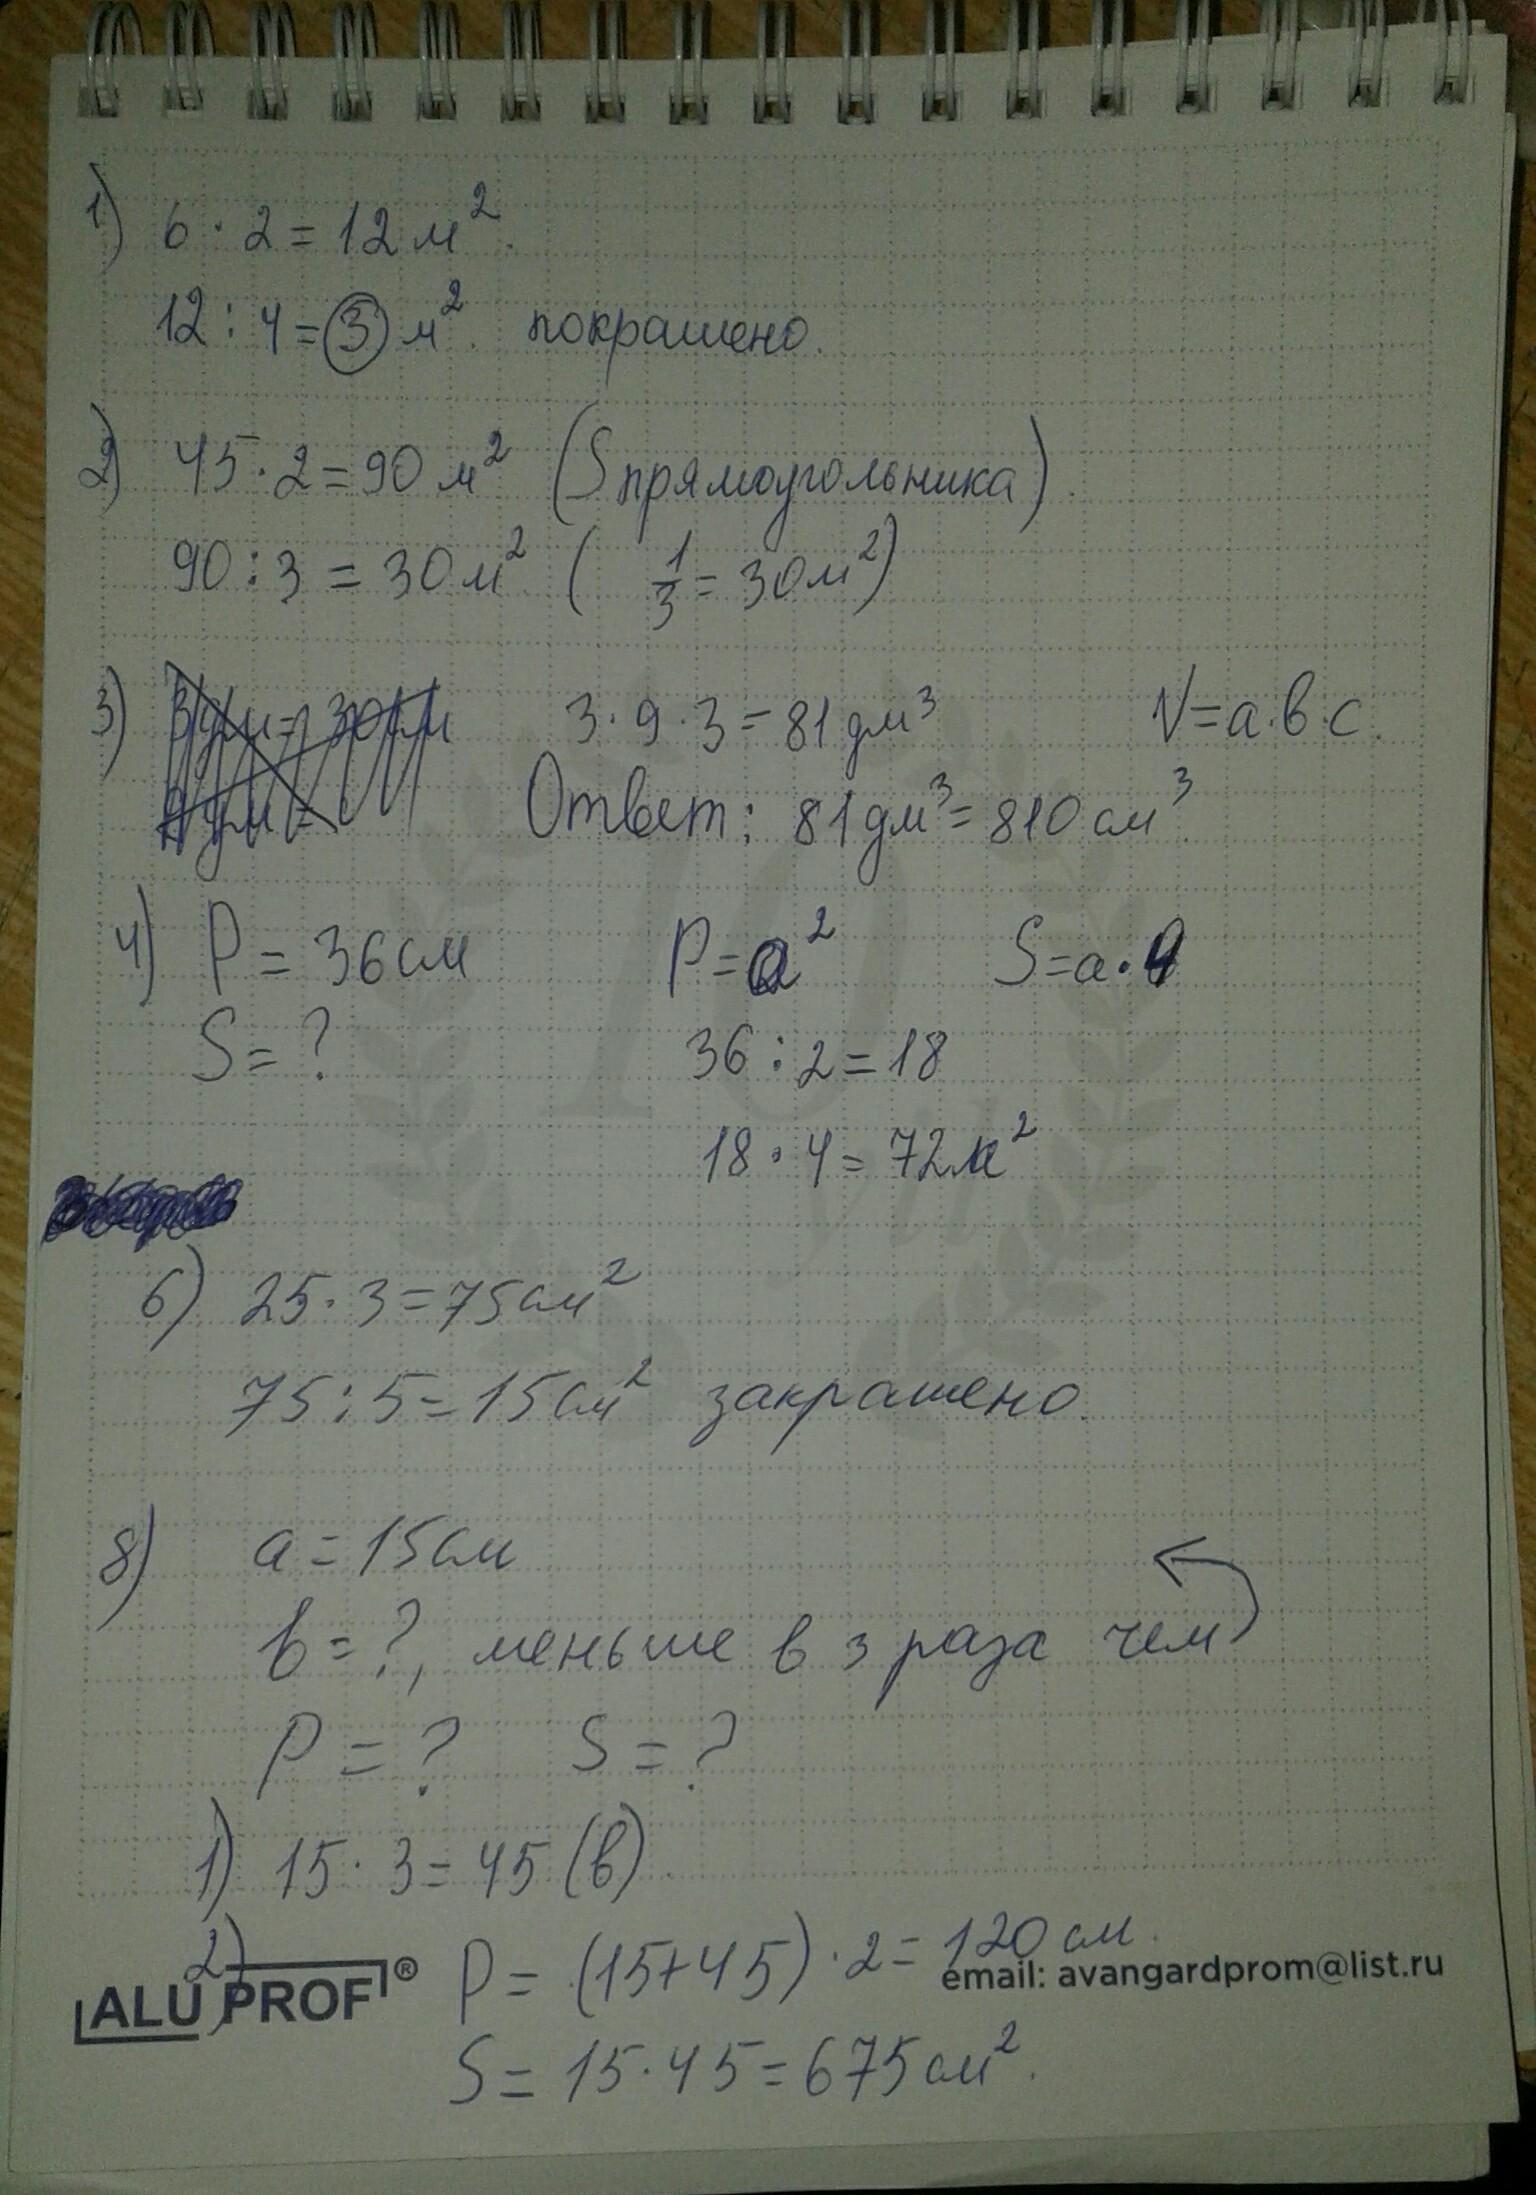 1) 6 · 2 = 12 м².
12 : 4 = 3 м². покрашено.
2) 45 · 2 = 90 м² (S прямоугольника).
90 : 3 = 30 м². ( 1/3 = 30 м²)
3) 3 дм = 30 см 3 · 9 · 3 = 81 дм³ V = a · b · c.
9 дм = Ответ : 81 дм³ = 810 см³.
4) P = 36 см P = a² S = a · 4
S = ? 36 : 2 = 18
18 · 4 = 72 м²
6) 25 · 3 = 75 см²
75 : 5 = 15 см² закрашено.
8) a = 15 см
b = ?, меньше в 3 раза чем
P = ? S = ?
1) 15 · 3 = 45 (b).
2) P = (15 + 45) · 2 = 120 см.
ALUPROF® email: avangardprom@list.ru
S = 15 · 45 = 675 см².